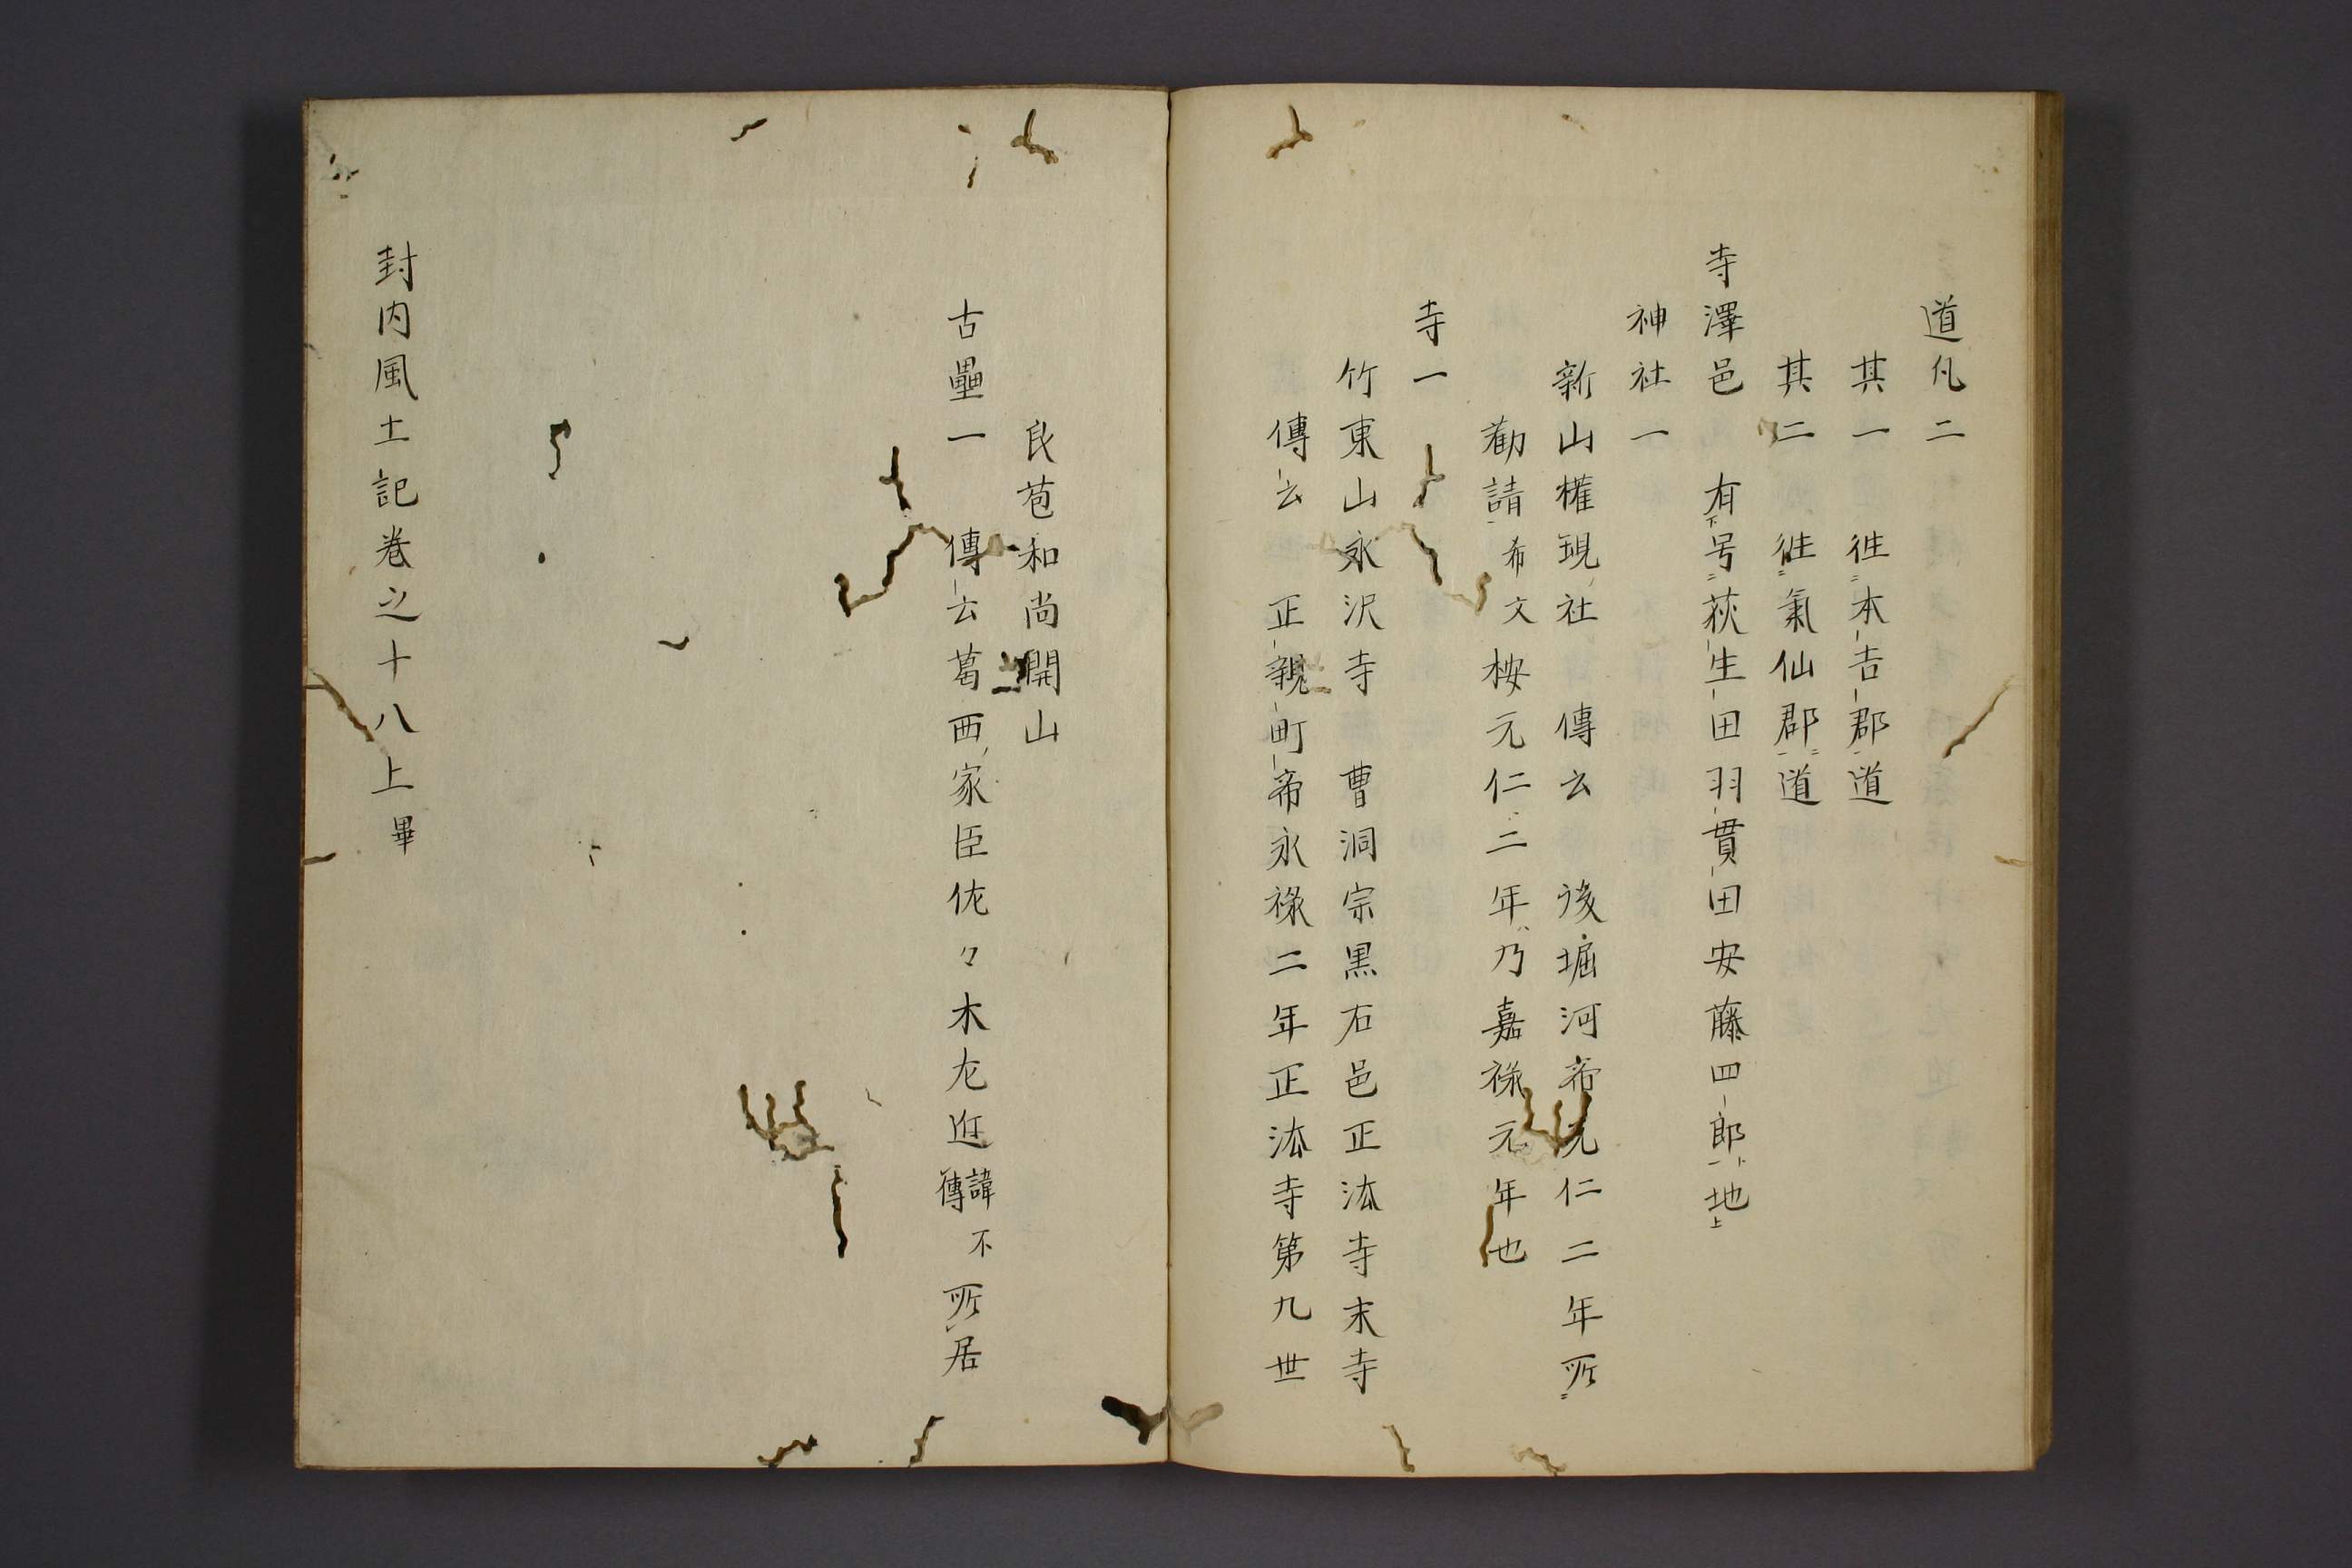 道凡二
其一　往本吉郡道
其二　往氣仙郡道
寺澤邑　有号荻生田羽貫田安藤四郎地
神社一
新山権現社　傳云　後堀河帝元仁二年所
勸請希文桉元仁二年乃嘉禄元年也
寺一
竹東山永沢寺　曹洞宗黒石邑正法寺末寺
傳云　正親町帝永禄二年正法寺第九世
良苞和尚開山
古壘一　傳云葛西家臣佐々木左近諱不傳所居
封内風土記巻之十八上畢